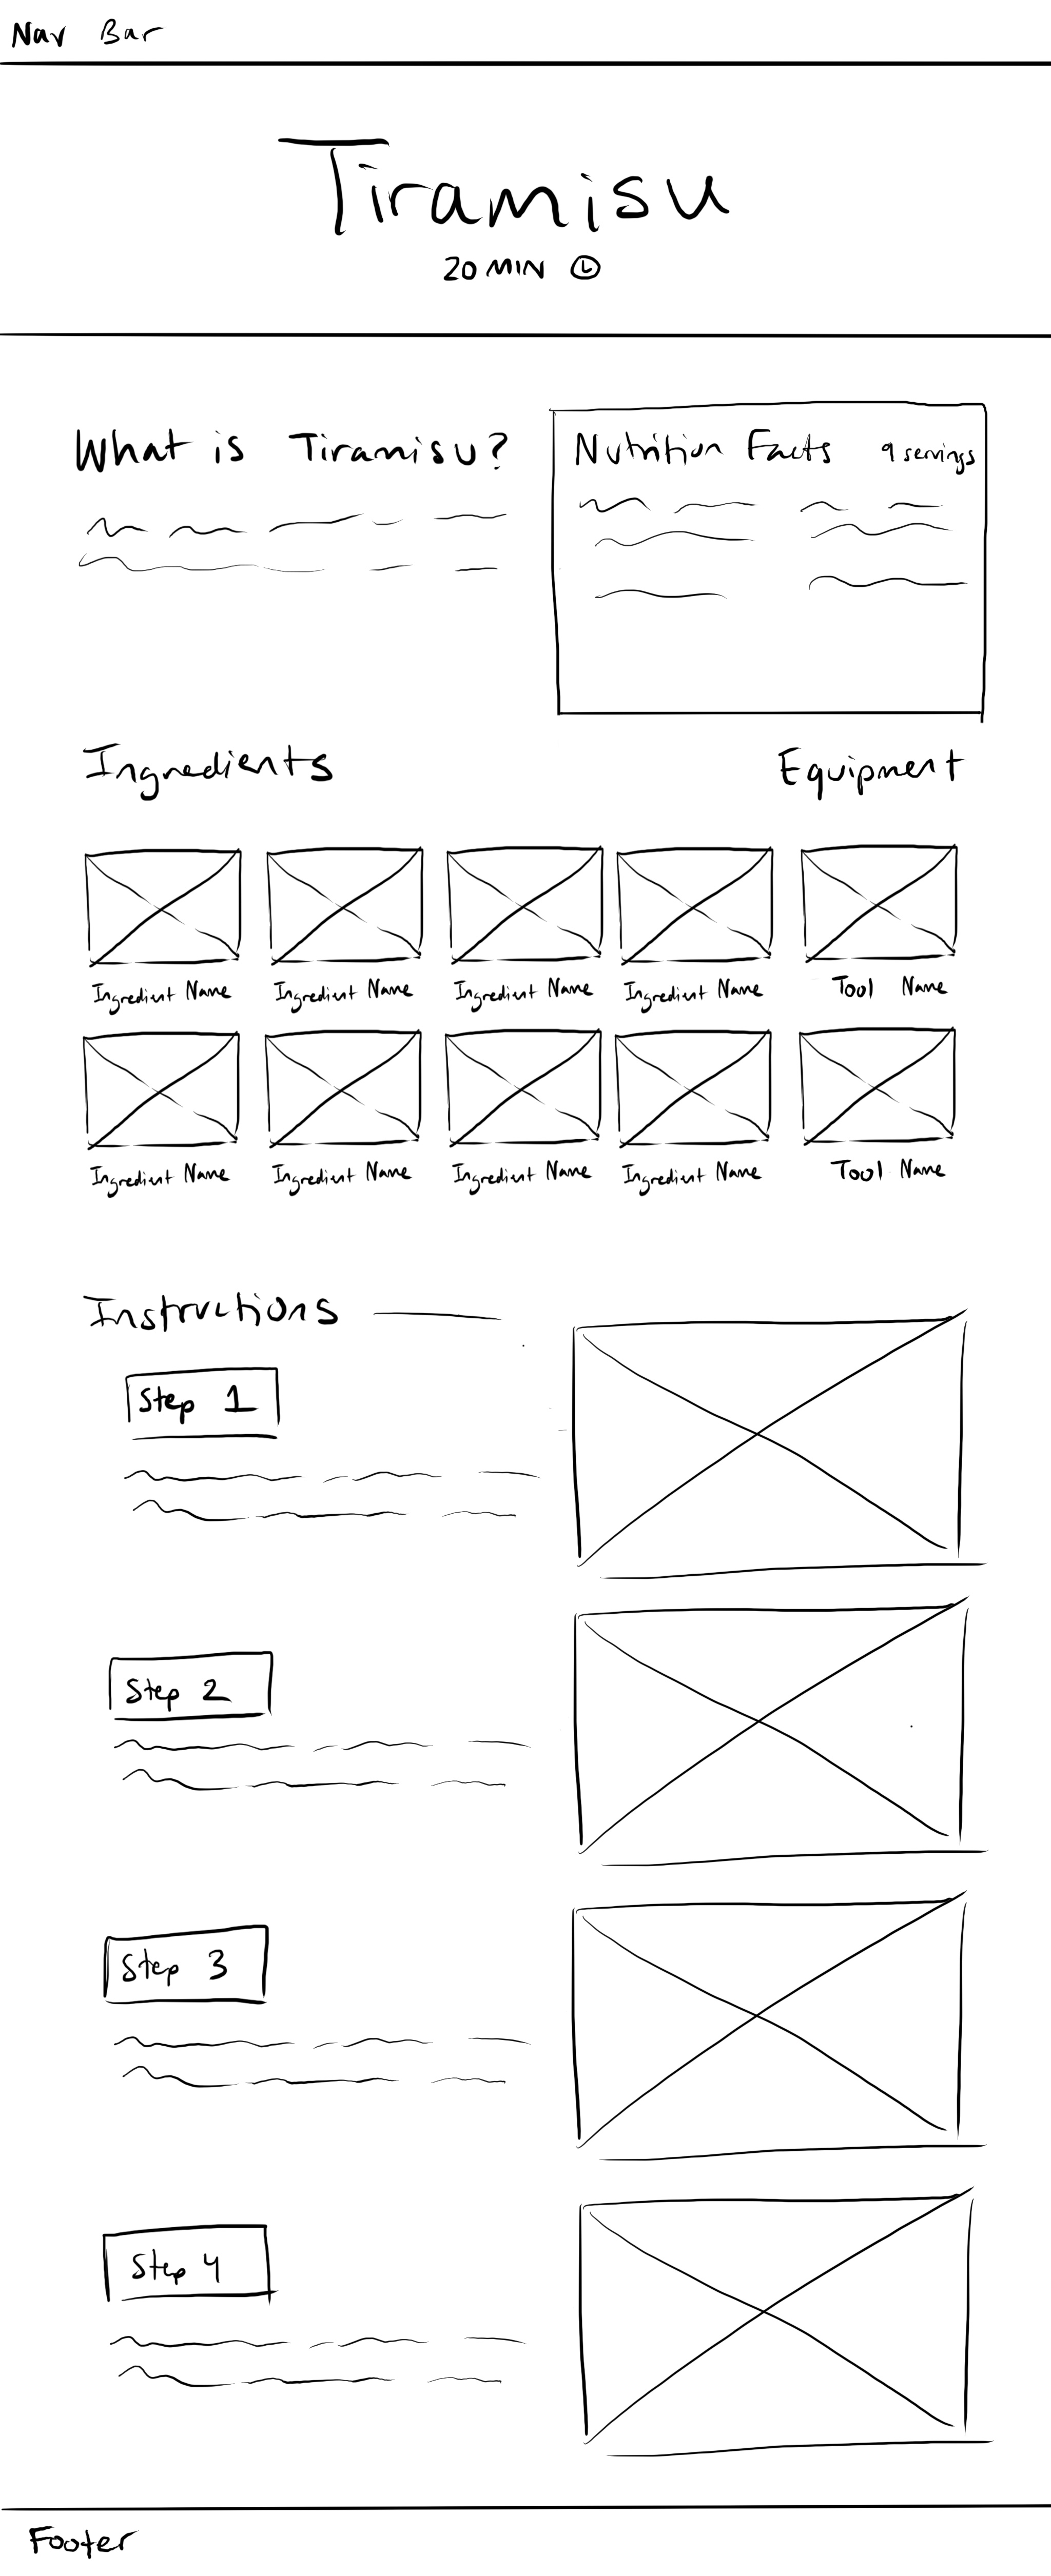 Nav Bar
Tiramisu
20 MIN
What is Tiramisu?
Nutrition Facts 9 servings
Ingredients
Equipment
Ingredient Name Ingredient Name Ingredient Name Ingredient Name Tool Name
Ingredient Name Ingredient Name Ingredient Name Ingredient Name Tool Name
Instructions
Step 1
Step 2
Step 3
Step 4
Footer